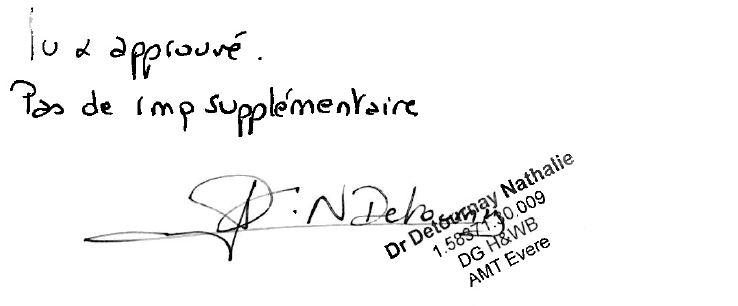 lu & approuvé.
Pas de imp supplémentaire
N Detournay
Dr Detournay Nathalie
1.58371.30.009
DG H&WB
AMT Evere